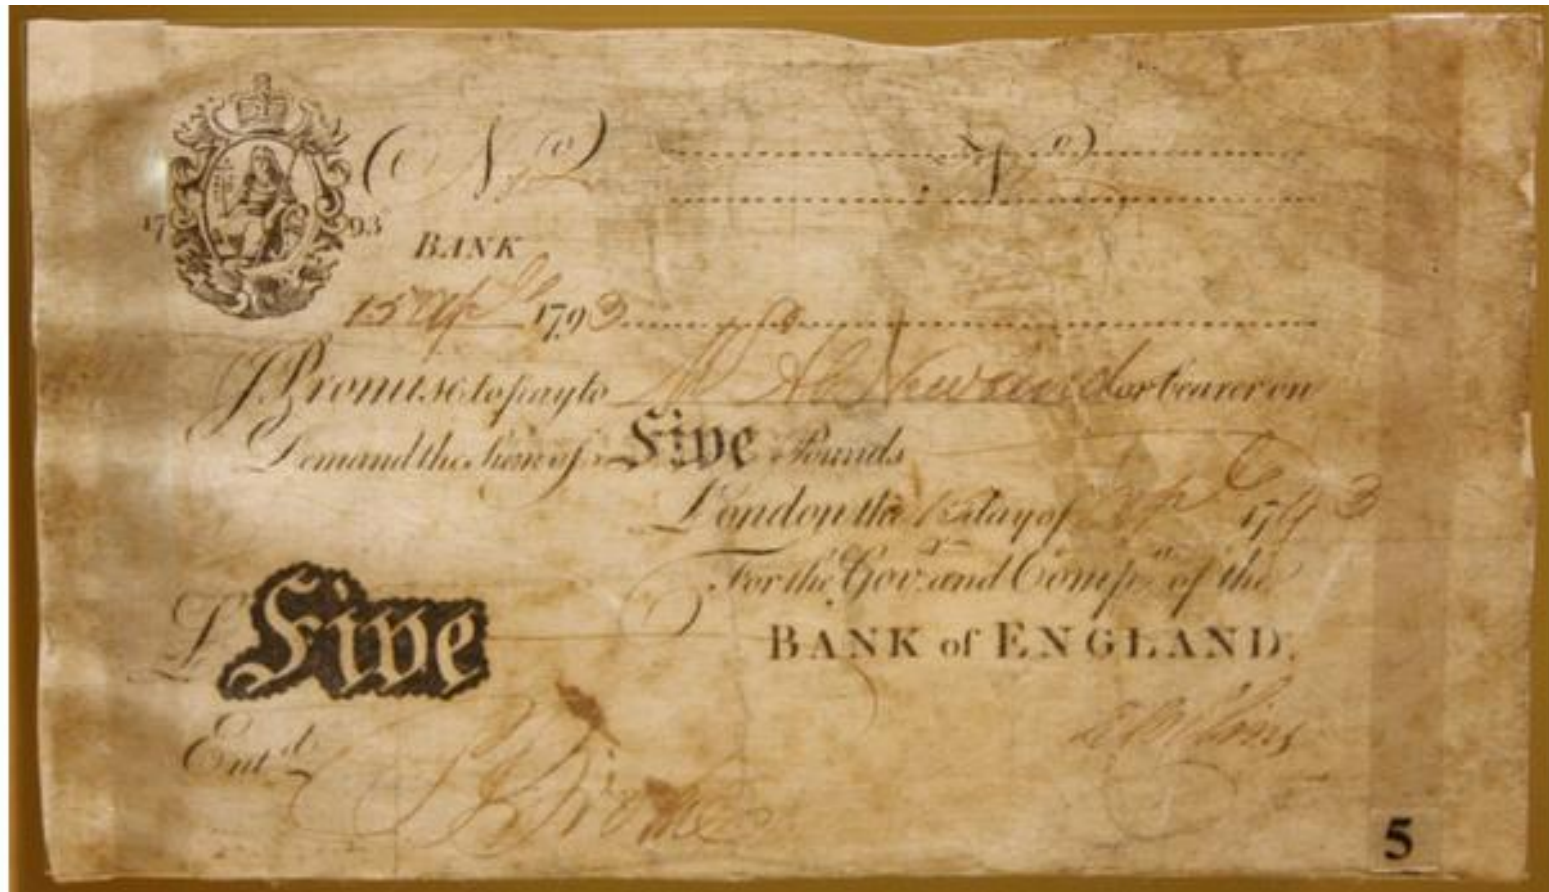 No No
17 93
BANK
15 Apl 1793
I Promise to pay to Mr Ab Newland or bearer on
Demand the Sum of Five Pounds
London the 15 day of Apl 1793
For the Govr. and Compa. of the
£ Five
BANK of ENGLAND.
Entd
5